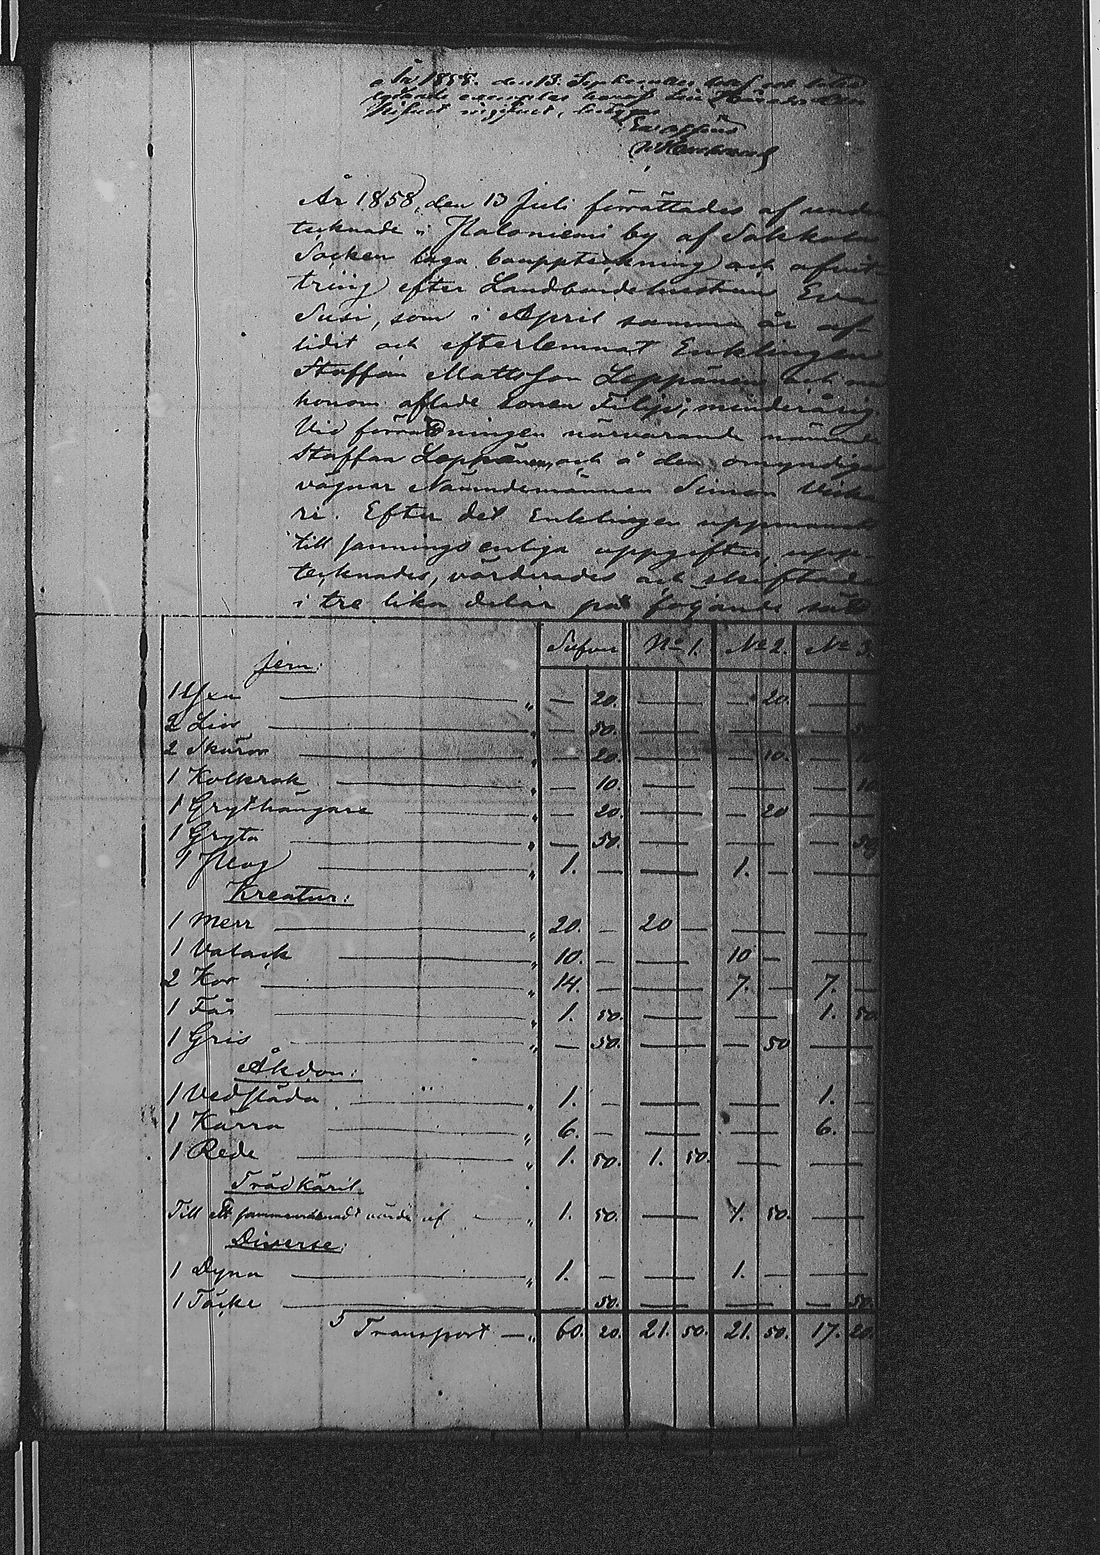 År 1858. den 13. September
År 1858, den 13 Juli förrättades af under
tecknade i Haloniemi by af Sakkola
Socken laga bouppteckning och afvit-
tring efter Landbondehustrun Eva
Susi, som i April samma år af-
lidit och efterlemnat Enklingen
Staffan Mattsson Leppänen och
honom aflade sonen Filip, minderårig.
Vid förrättningen närvarande
Staffan Leppänen, och å den omyndiga
vägnar Nämndemannen Simon
ri. Efter det Enklingen uppmanats
till sannings enliga uppgifter, upp-
tecknades, värderades och skiftades
i tre lika delar på följande sätt
Jern: Silfver No 1. No 2. No 3.
1 Yxa " — 20. — — — 20. —
2 Liar " — 50. — — — — — 50
2 Skäror " — 20. — — — 10. — 10
1 Kolkrok " — 10. — — — — — 10
1 Grythängare " — 20. — — — 20 —
1 Gryta " — 50. — — — — — 50
1 Plog " 1. — — — 1. — —
Kreatur:
1 Merr " 20. — 20 — — —
1 Valack " 10. — — 10 — —
2 Kor " 14. — — 7. — 7. —
1 Får " 1. 50. — — 1. 50
1 Gris " — 50. — — 50 —
Åkdon:
1 Vedsläda " 1. — — — 1. —
1 Kärra " 6. — — — 6. —
1 Rede " 1. 50. 1. 50. — —
Trädkäril
Till ett sammanräknadt värde af " 1. 50. — 1. 50. —
Diverse:
1 Dyna " 1. — — 1. — —
1 Täcke 50. — — — 50.
Transport — " 60. 20. 21. 50. 21. 50. 17. 20.